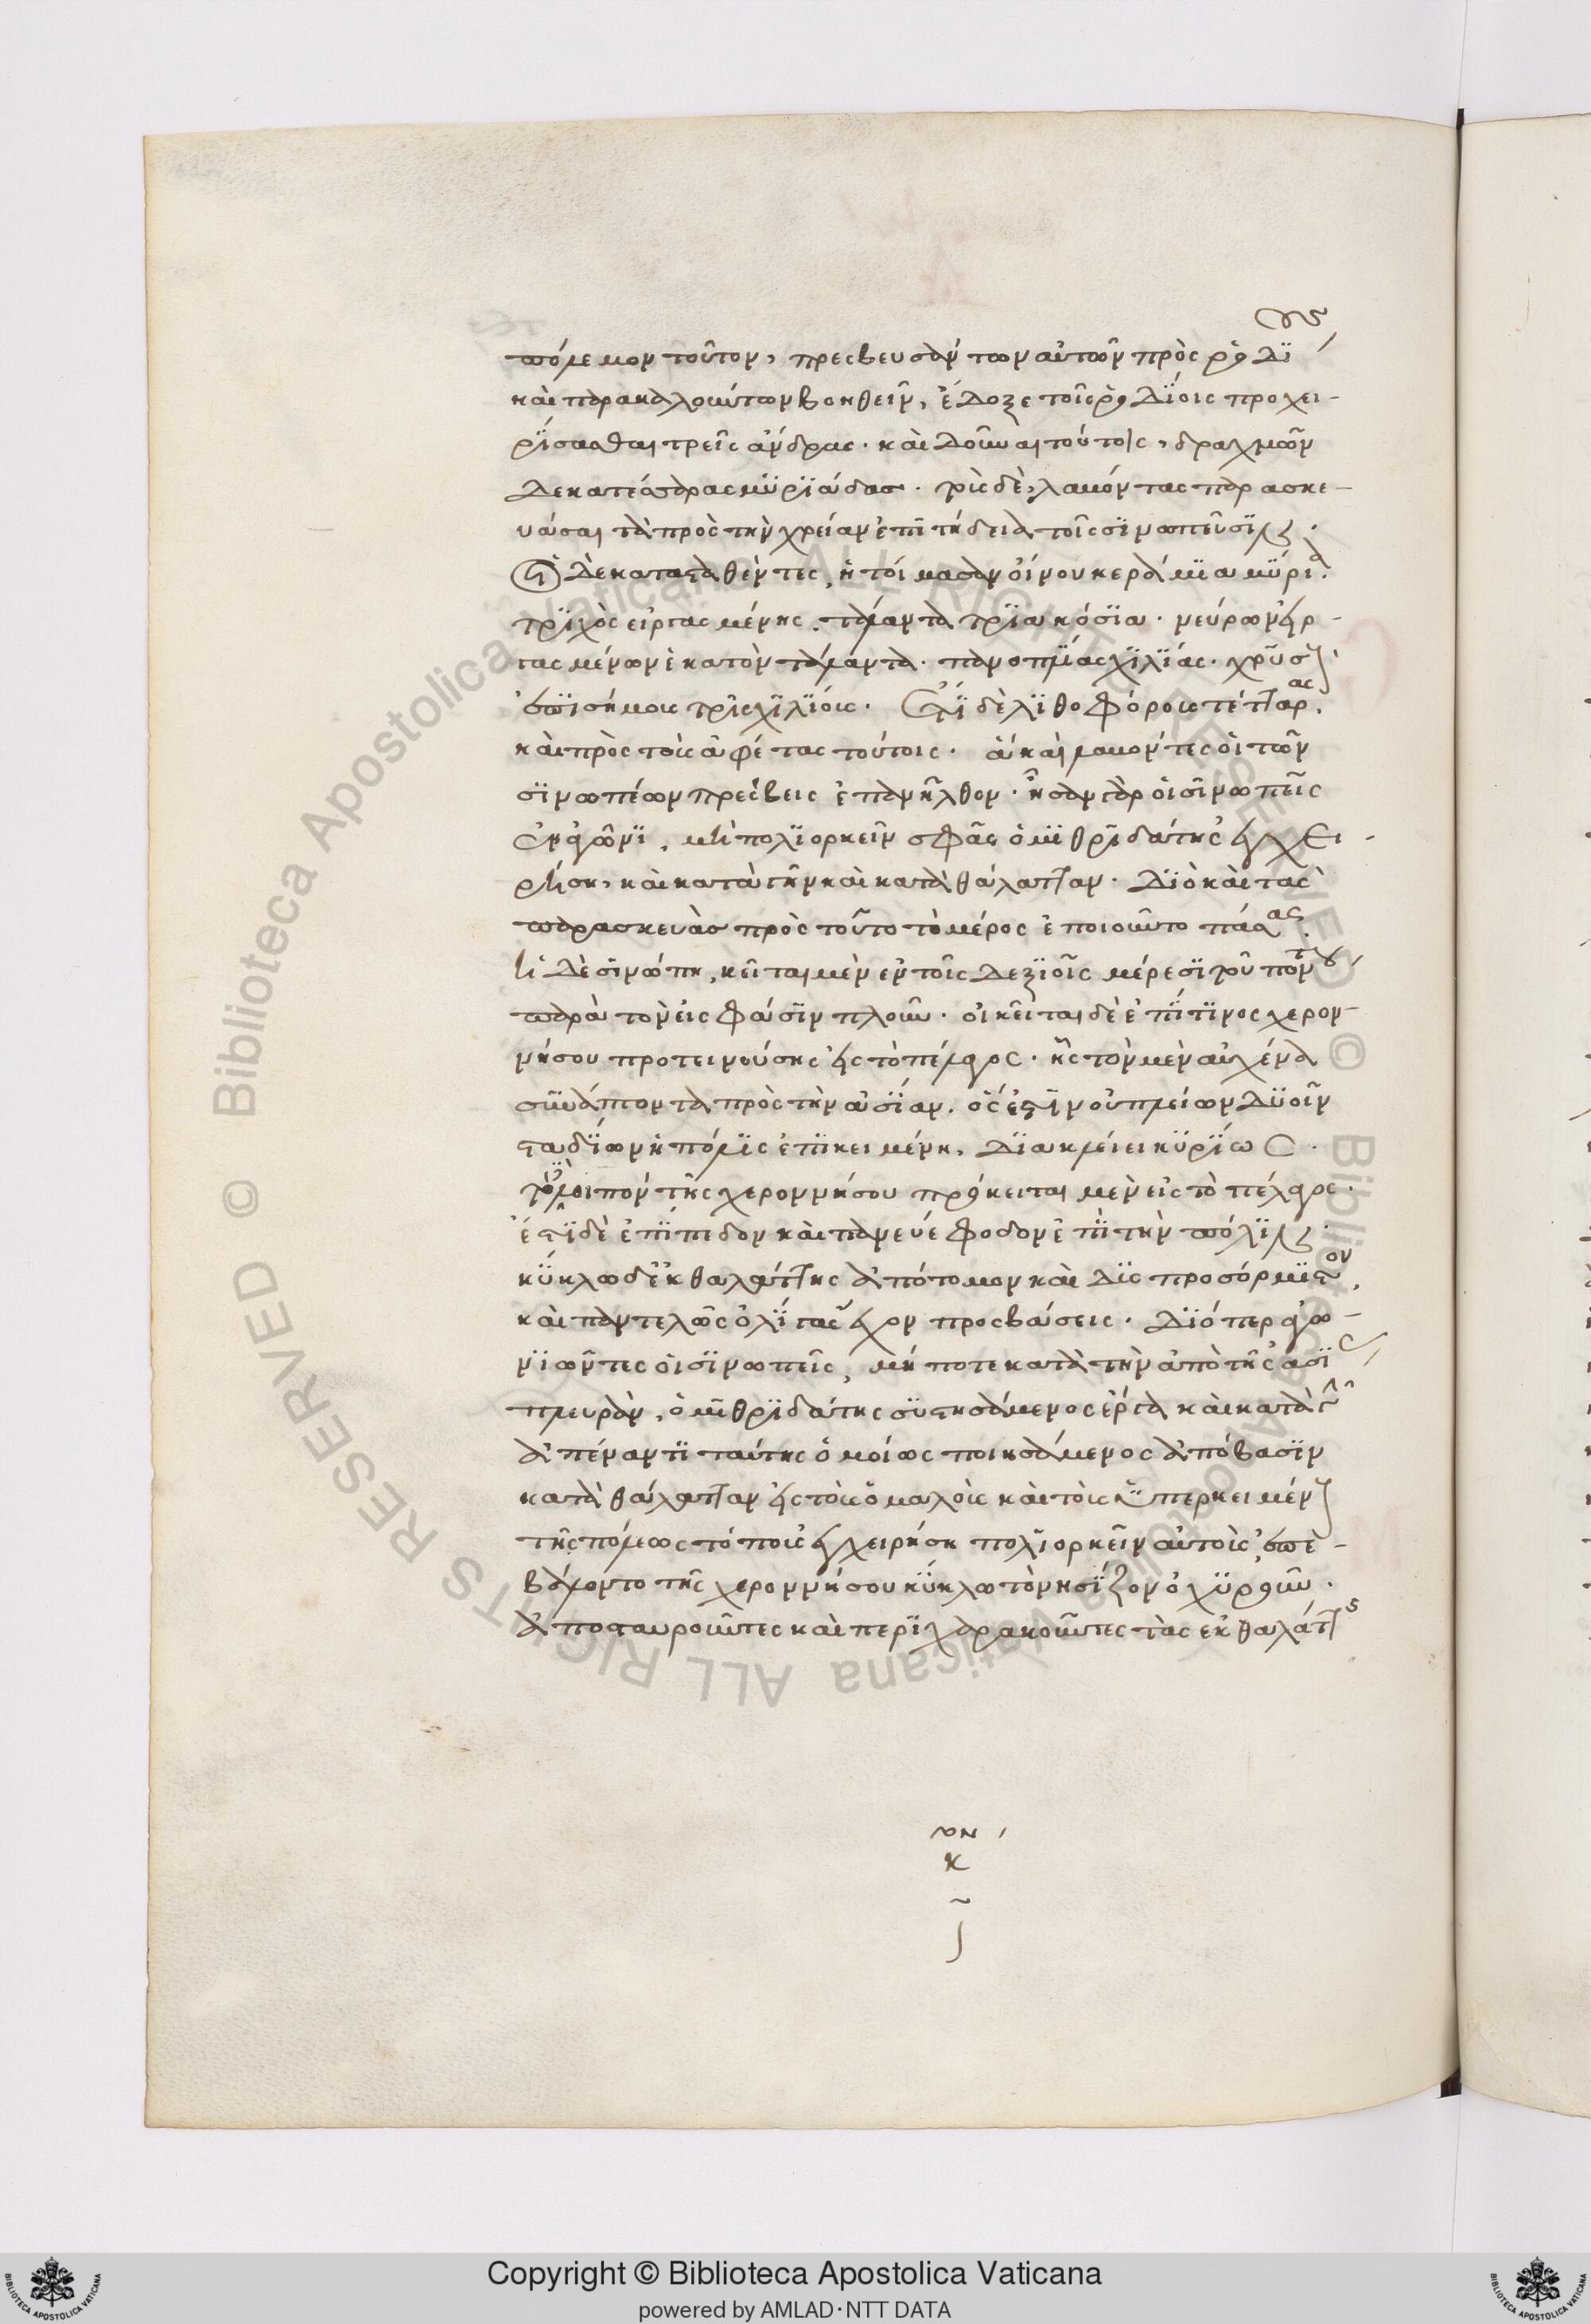 πόλεμον τοῦτον, πρεσβευσάντων αὐτῶν πρὸς ῥοδΐους
καὶ παρακαλούντων βοηθεῖν, ἔδοξε τοῖς ῥοδΐοις προχει-
ρΐσασθαι τρεῖς ἄνδρας· καὶ δοῦναι τούτοις, δραχμῶν
δεκατέσσαρας μϋρϊάδας. τοὺς δὲ, λαβόντας παρασκε-
υάσαι τὰ πρὸς τὴν χρείαν ἐπϊτήδεια τοῖς σϊνωπεῦσϊν.
οἱ δὲ κατασταθέντες, ἡτοίμασαν οἴνου κεράμϊα μϋρια.
τρϊχὸς εἰργασμένης, τάλαντα τρϊακόσϊα. νεύρων εἰρ-
γασμένων ἑκατὸν τάλαντα. πανοπλΐας χϊλΐας. χρυσοῦς
ἐπϊσήμους τρϊσχϊλΐους. ἔτϊ δὲ λϊθοφόρους τέτταρας.
καὶ πρὸς τοὺς ἀφέτας τούτοις. ἃ καὶ λαβόντες οἱ τῶν
σϊνωπέων πρέσβεις ἐπανῆλθον· ἦσαν γὰρ οἱ σϊνωπεῖς
ἐν ἀγωνΐα, μὴ πολϊορκεῖν σφᾶς ὁ μϊθρϊδάτης ἐγχει-
ρήσῃ, καὶ κατὰ γῆν καὶ κατὰ θάλατταν. δϊὸ καὶ τὰς
παρασκευὰς πρὸς τοῦτο τὸ μέρος ἐποιοῦντο πάσας.
ἡ δὲ σϊνώπη, κεῖται μὲν ἐν τοῖς δεξϊοῖς μέρεσϊ τοῦ πόντου
παρὰ τὸν εἰς φάσϊν πλοῦν. οἰκεῖται δὲ ἐπΐ τϊνος χερον-
νήσου προτεινούσης εἰς τὸ πέλαγος. ἧς τὸν μὲν αὐχένα
συνάπτοντα πρὸς τὴν ἀσΐαν. ὅς ἐστϊν οὐ πλείων δϋοῖν
σταδΐων ἡ πόλϊς ἐπϊκειμένη, δϊακλείει κϋρΐως.
τὸ δὲ λοιπὸν τῆς χερονήσου πρόκειται μὲν εἰς τὸ πέλαγος.
ἔστϊ δὲ ἐπΐπεδον καὶ πανευέφοδον ἐπϊ τὴν πόλϊν.
κϋκλω δ' ἐκ θαλάττης ἀπότομον καὶ δυσπροσόρμϊστον,
καὶ παντελῶς ὀλΐγας ἔχον προσβάσεις. δϊόπερ ἀγω-
νϊῶντες οἱ σϊνωπεῖς, μή ποτε κατὰ τὴν ἀπὸ τῆς ἀσΐας
πλευράν, ὁ μϊθρϊδάτης συστησάμενος ἔργα καὶ κατὰ τὴν
ἀπέναντϊ ταύτης ὁμοίως ποιησάμενος ἀπόβασϊν
κατὰ θάλατταν εἰς τοὺς ὁμαλοὺς καὶ τοὺς ὑπερκειμένους
τῆς πόλεως τόπους ἐγχειρήσῃ πολϊορκεῖν αὐτοὺς, ἐπε-
βάλοντο τῆς χερονήσου κϋκλω τὸ νησΐζον ὀχϋροῦν.
ἀποσταυροῦντες καὶ περϊχαρακοῦντες τὰς ἐκ θαλάττης